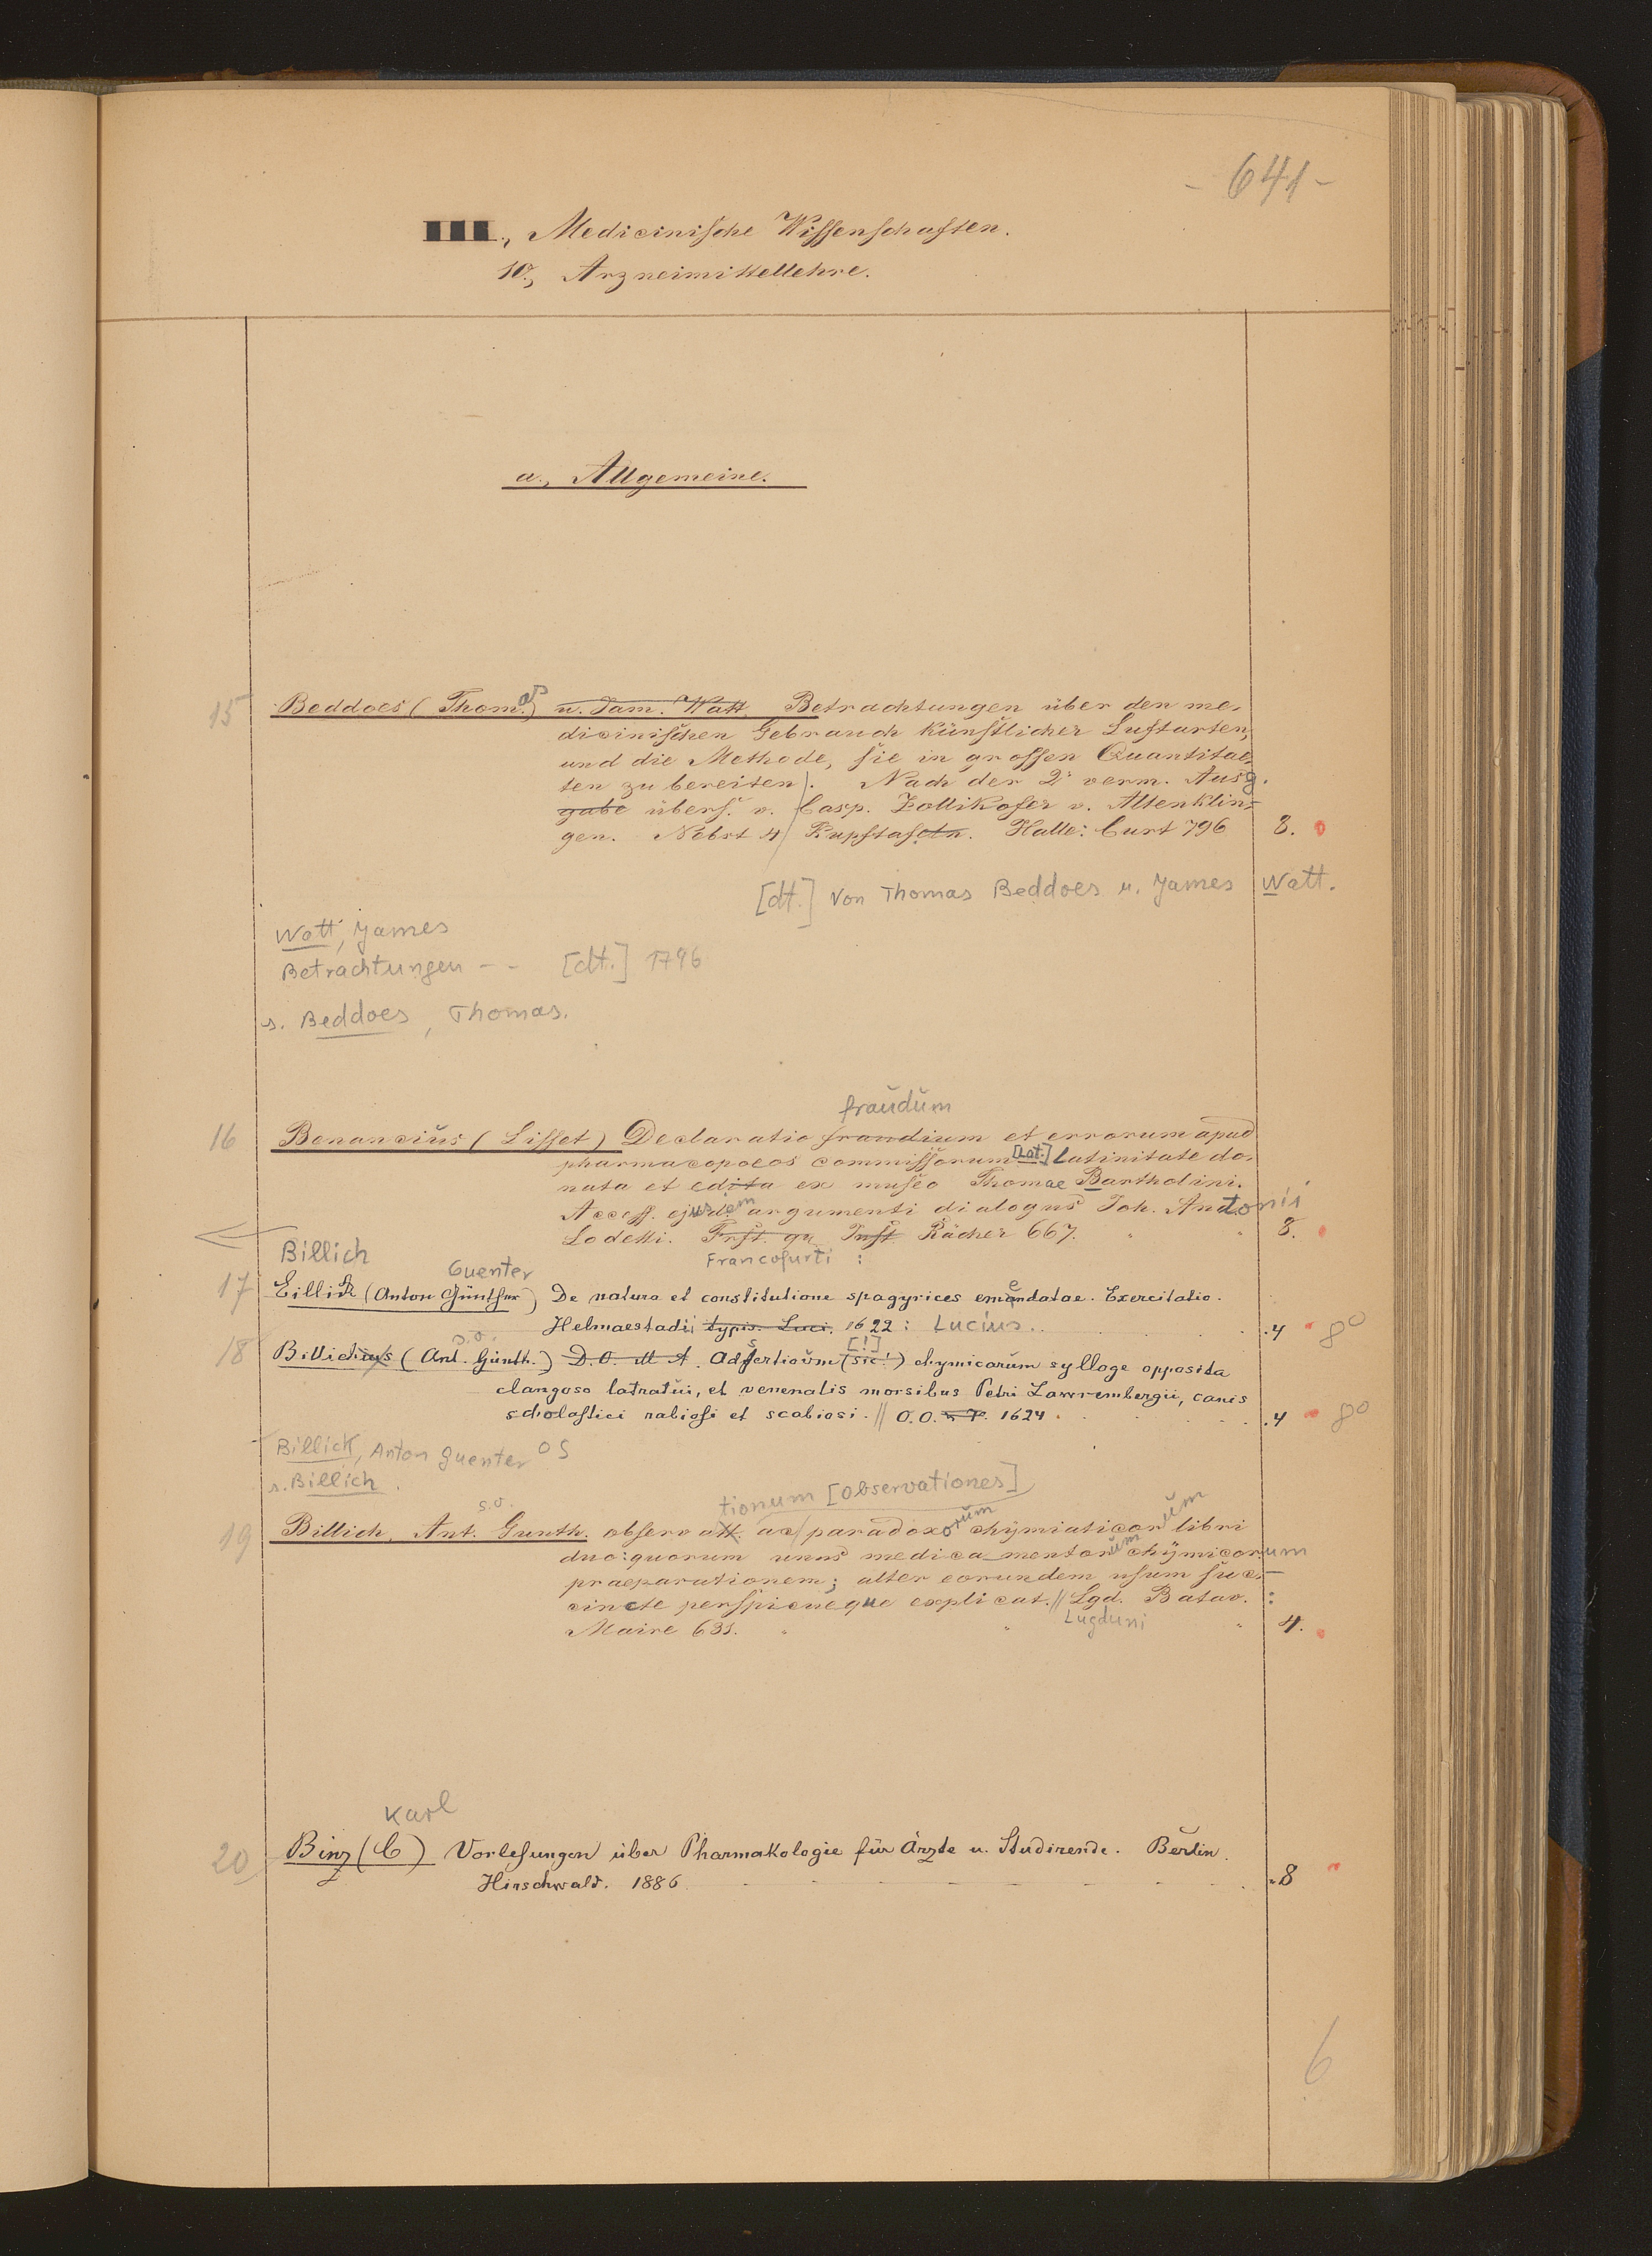 - 641 -
III., Medicinische Wissenschaften.
10., Arzneimittellehre.
a., Allgemeine.
15 Beddoes (Thom.as) u. Jam. Watt, Betrachtungen über den me-
dicinischen Gebrauch künstlicher Luftarten,
und die Methode, sie in grossen Quantitae-
ten zu bereiten. Nach der 2. verm. Ausg.
gabe übers. v. Casp. Zollikofer v. Altenklin-
gen. Nebst 4 Kupftafeln. Halle: Curt 796 8.
[dt.] Von Thomas Beddoes u. James Watt.
Watt, James
Betrachtungen - - [dt.] 1796
s. Beddoes, Thomas.
fraudum
16 Benancius (Lisset) Declaratio fraudium et errorum apud
pharmacopoeos commissorum [Lat.] Latinitate do-
nata et edita ex museo Thomae Bartholini.
Access. ejusdem argumenti dialogus Joh. Antonii
Lodetti. Rächer 667. 8.
Francofurti :
Billich
Guenter
17 Billich (Anton Günther) De natura et constitutione spagyrices emendatae. Exercitatio.
Helmaestadi: typis. Luci. 1622 : Lucius. 4 8°
s.o. [!]
18 Billichius (Ant. Günth.) D. O. M A. Adsertioum (sic!) chymicarum sylloge opposita
clangoso latratui, et venenatis morsibus Petri Lawrembergii, canis
scholastici rabiosi et scabiosi. // O.O. 1624 4 8°
Billick, Anton Guenter OS
s. Billich.
s.o. tionum [Observationes]
19 Billich, Ant. Gunth. observatt. ac paradoxorum chymiaticorum libri
duo: quorum unus medicamentorum chymicorum
praeparationem; alter eorundem usum suc-
cincte perspicueque explicat. // Lgd. Batav. :
Lugduni
Maire 631. 4.
Karl
20 Binz (C) Vorlesungen über Pharmakologie für Ärzte u. Studirende. Berlin.
Hirschwald. 1886 8
6